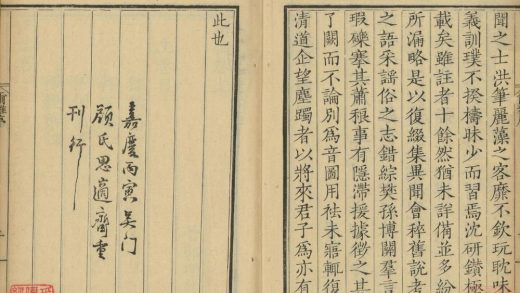 聞之士洪筆麗藻之客靡不欽玩耽味
義訓璞不揆檮昧少而習焉沈研鑽極
載矣雖註者十餘然猶未詳備並多紛
所漏略是以復綴集異聞會稡舊說考
之語采謠俗之志錯綜樊孫博關羣言
瑕礫搴其蕭稂事有隱滯援據徵之其
了闕而不論別為音圖用祛未寤輒復
清道企望塵躅者以將來君子為亦有
此也
嘉慶丙寅吴门
顧氏思適齋重
刊行